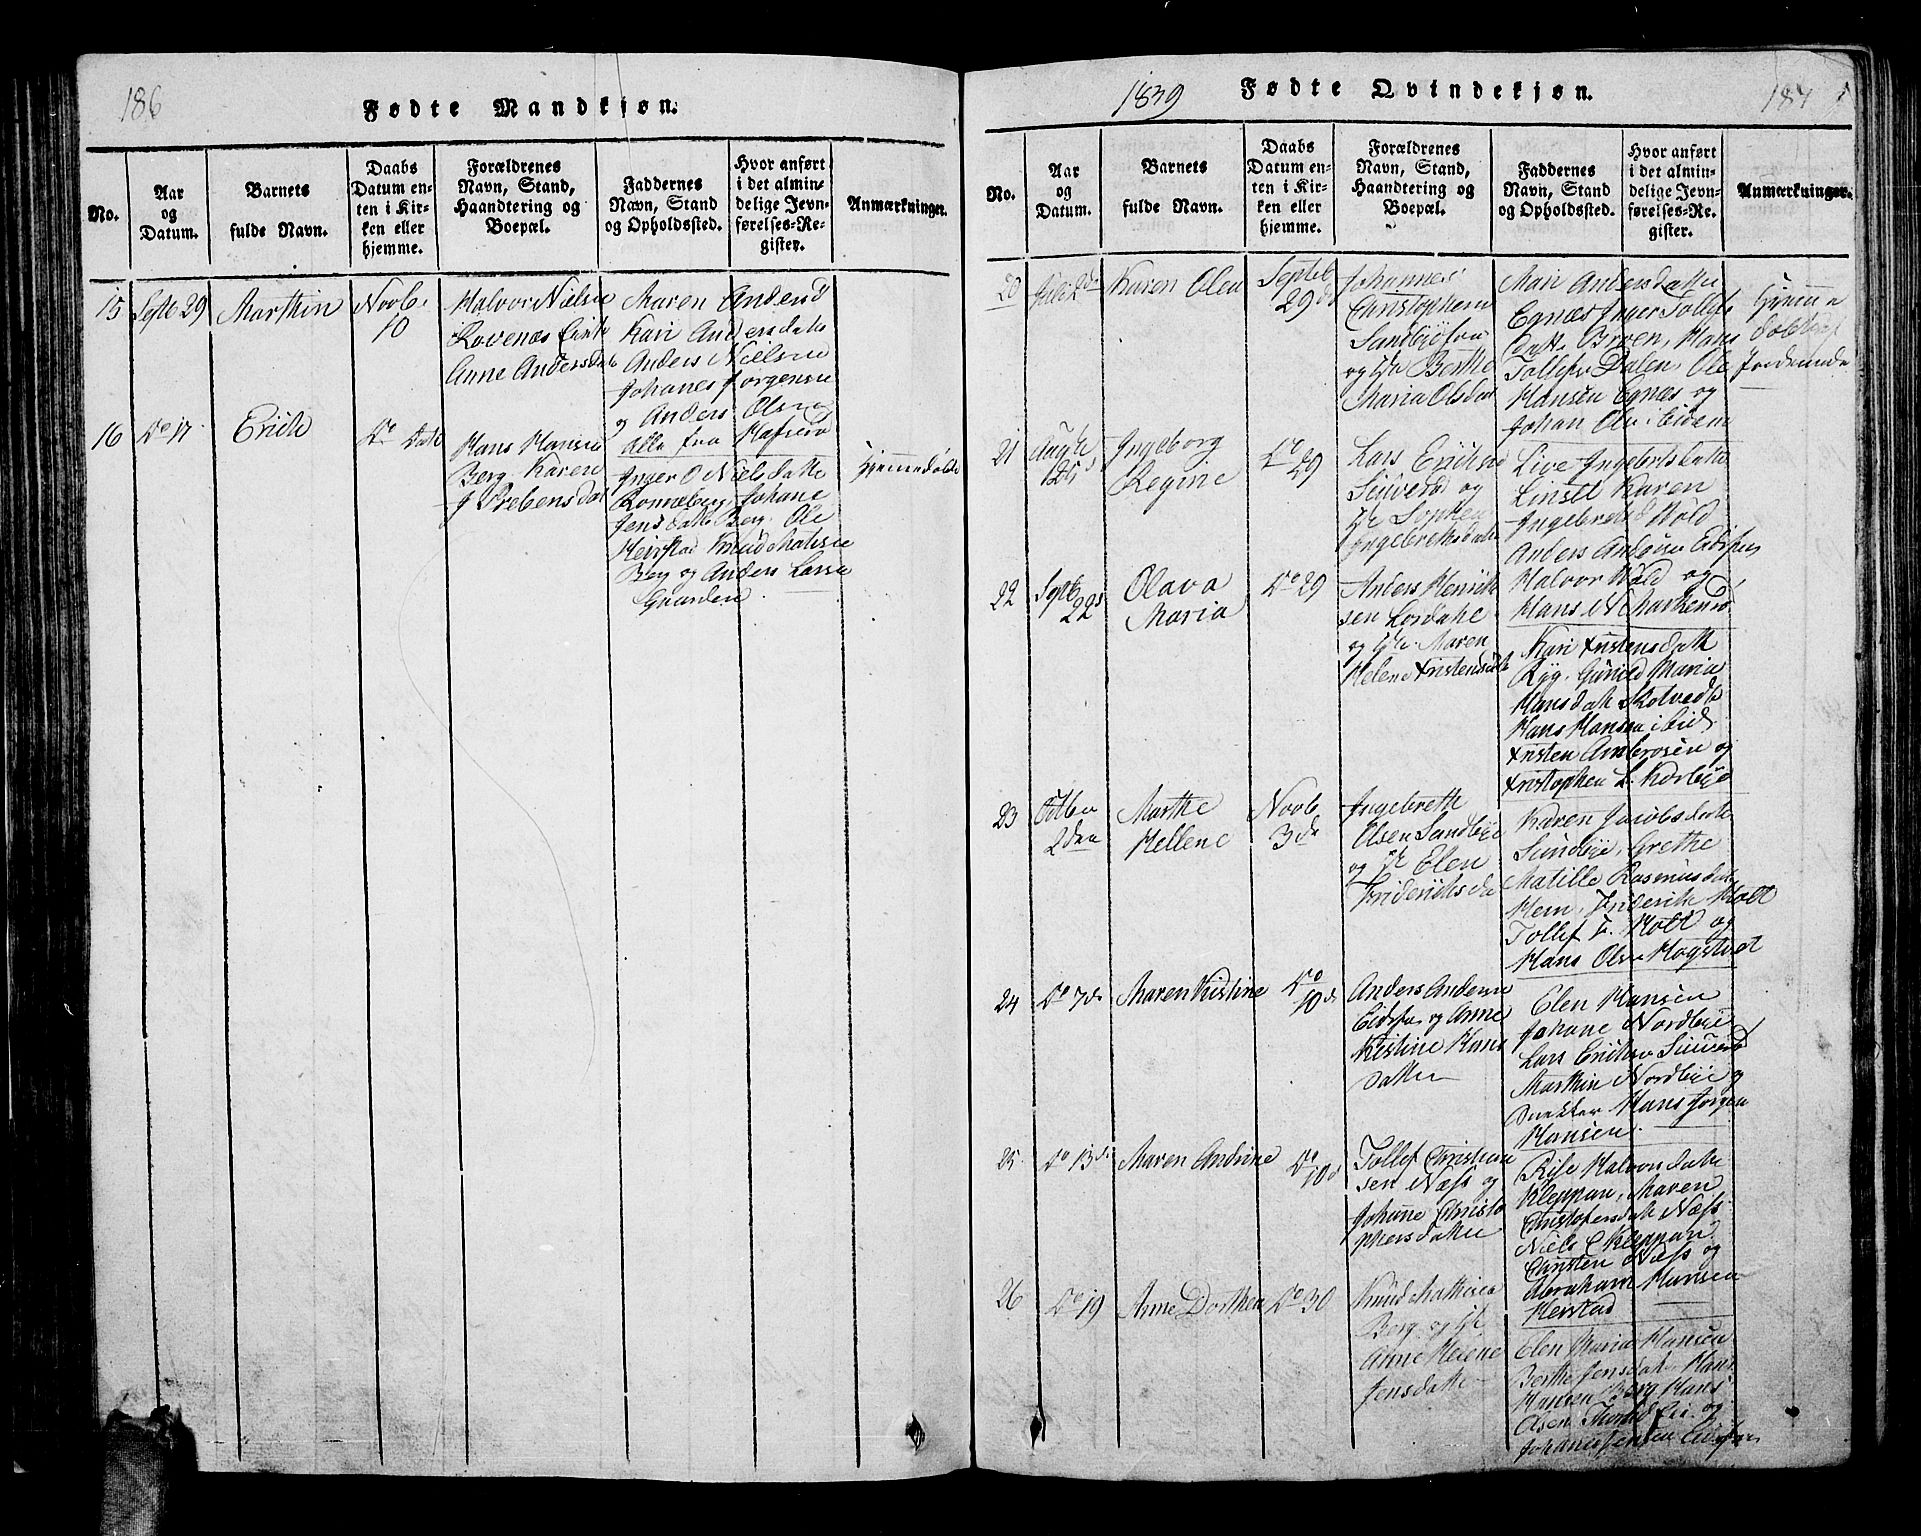 186
Fødte Mandkjøn.
No.
Aar
og
Datum.
Barnets
fulde Navn.
Daabs
Datum en-
ten i Kir-
ken eller
hjemme.
Forældrenes
Navn, Stand,
Haandtering og
Boepæl.
Faddernes
Navn, Stand
og Opholdssted.
Hvor anført
i det almin-
delige Jevn-
førelses-Re-
gister.
Anmærkninger.
15
Septb 29
Marthin
Novbr
10
Halvor Nielsen
Rovenæs
Anne Andersdatt
Maren Andersd
Kari Andersdatte
Anders Nielsen
Johanes Jorgensen
og Anders Olsen
Alle fra
16
Do 17
Erich
Do
Hans Hansen
Berg Karen
J Prebensdat
Inger O Nielsdatte
Ronneberg Johane
Jensdatte Berg. Ole
Heistad Knud Mathisen
Berg og Anders Larsen
Gaarden
Hjemmedøbt
1839
Fødte Qvindekjøn.
187
No.
Aar
og
Datum.
Barnets
fulde Navn.
Daabs
Datum en-
ten i Kir-
ken eller
hjemme.
Forældrenes
Navn, Stand,
Haandtering og
Boepæl.
Faddernes
Navn, Stand
og Opholdssted.
Hvor anført
i det almin-
delige Jevn-
førelses-Re-
gister.
Anmærkninger.
20
Karen Olea
Septeb
29 de
Johannes
Christophersen
Sandøje
og Berthe
Maria Olsdat
Mari Andersdatte
Egnæs Inger Tollefs
Datte Hans
Tollefsen Dalen, Ole
Hansen Egnæs og
Johan Olsen Eidene
Hjemme
21
Ingeborg
Regine
Do
29
Lars Erichsen
og
Sophie
Ingebrethsdatte
Live Ingebrets datte
Karen
Ingebretsd Wold
Anders Andersen
Halvor Wold og
Hans N
22
Septb
22
Olava
Maria
Do 29
Anders Henrik
sen
og Maren
Helene Kristensdatte
Kari Kristensdatte
Ryg. Gunild Maria
Hansdatte Skotvedt
Hans Hansen
Kristen Ambrosen og
Kristophen L.
23
Octber
2den
Marthe
Hellene
Novb
3 de
Ingebreth
Olsen Sandøje
og Elen
Friderichsda
Karen Jacobsdatte
Sundøje, Grethe
Matille Rasmusdatte
Hem, Friderik Holt
Tollef F. Holt og
Hans Olsen
24
Do 7de
Maren Kistine
Do
10 de
Anders Andersen
og Anne
Kistine Hans
datte
Elen Hansen
Johane Nordbøe
Lars Erichsen
Marthin Nordbøe og
Snekker Hans Jorgen
Hansen.
25
Do 13 de
Maren Andrine
Do
10 d
Tollef Christian
sen Næss og
Johanne Christo
phersdatte
Halvorsdatte
Kleppan, Maren
Christofersdatt Næss
Niels C Kleppan
Carsten Næss og
Abraham Hansen
Heistad
26
Do 19
Anne Dorthea
Do 30
Knud Mathisen
Berg og
Anne Helene
Jensdatte
Elen Maria Hansen
Berthe Jensdatte Hans
Hansen Berg Hans
Olsen og
Johannes Jensen